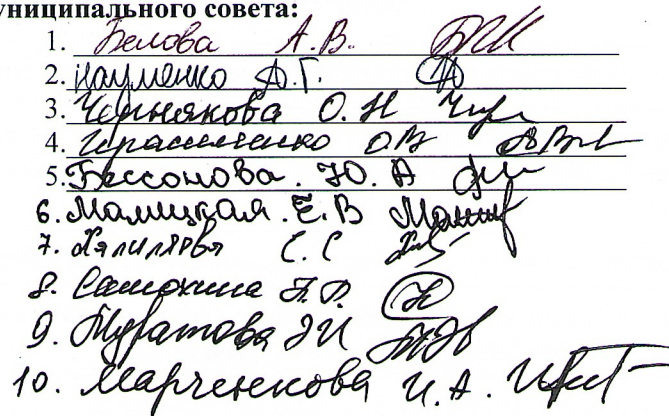 униципального совета:
1. Белова А.В.
2. Науменко А.Г.
3. Чернякова О.Н
4. Герасименко О.В
5. Бессонова Ю.А
6. Малицкая Е.В
7. С.С
8. Самохина
9. Муратова Э.И
10. Марченкова И.А.